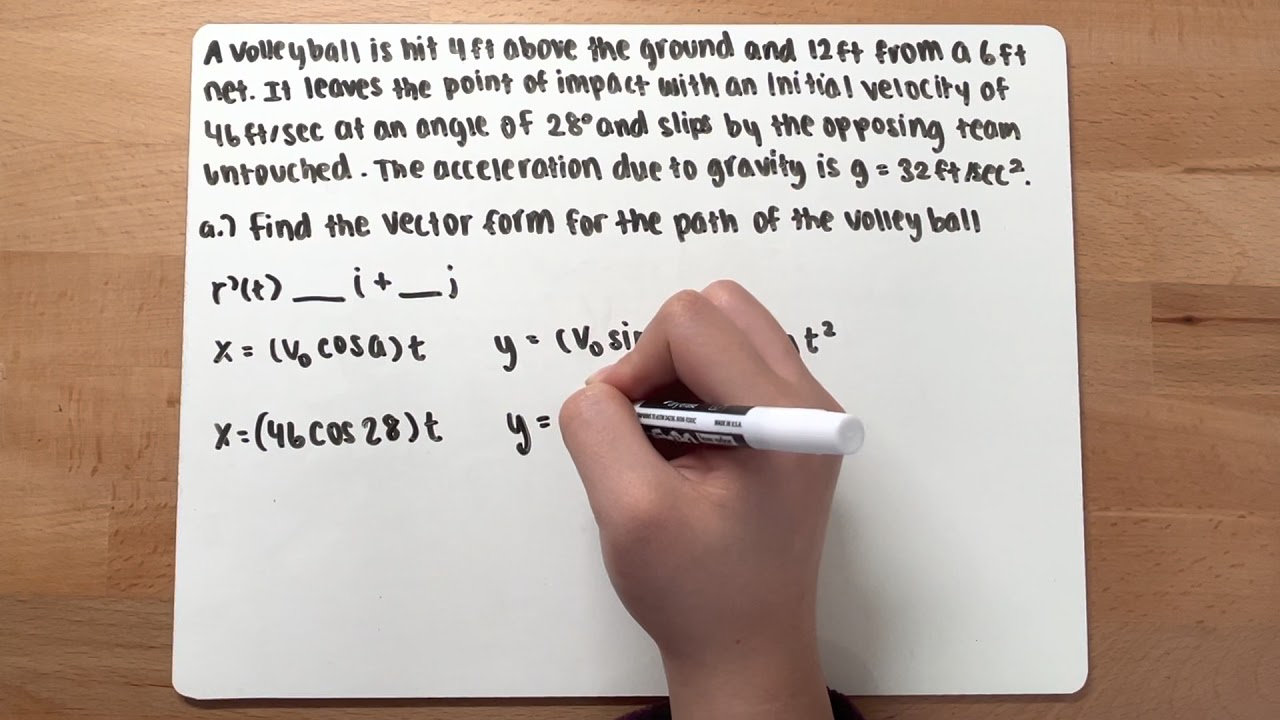 A volleyball is hit 4ft above the ground and 12ft from a 6ft
net. It leaves the point of impact with an initial velocity of
46ft/sec at an angle of 28° and slips by the opposing team
untouched. The acceleration due to gravity is g = 32ft/sec².
a.) Find the vector form for the path of the volleyball
r(t) __ i + __ j
x = (V₀ cos a) t y = (V₀ sin t²
x = (46 cos 28) t y =
MADE IN U.S.A.